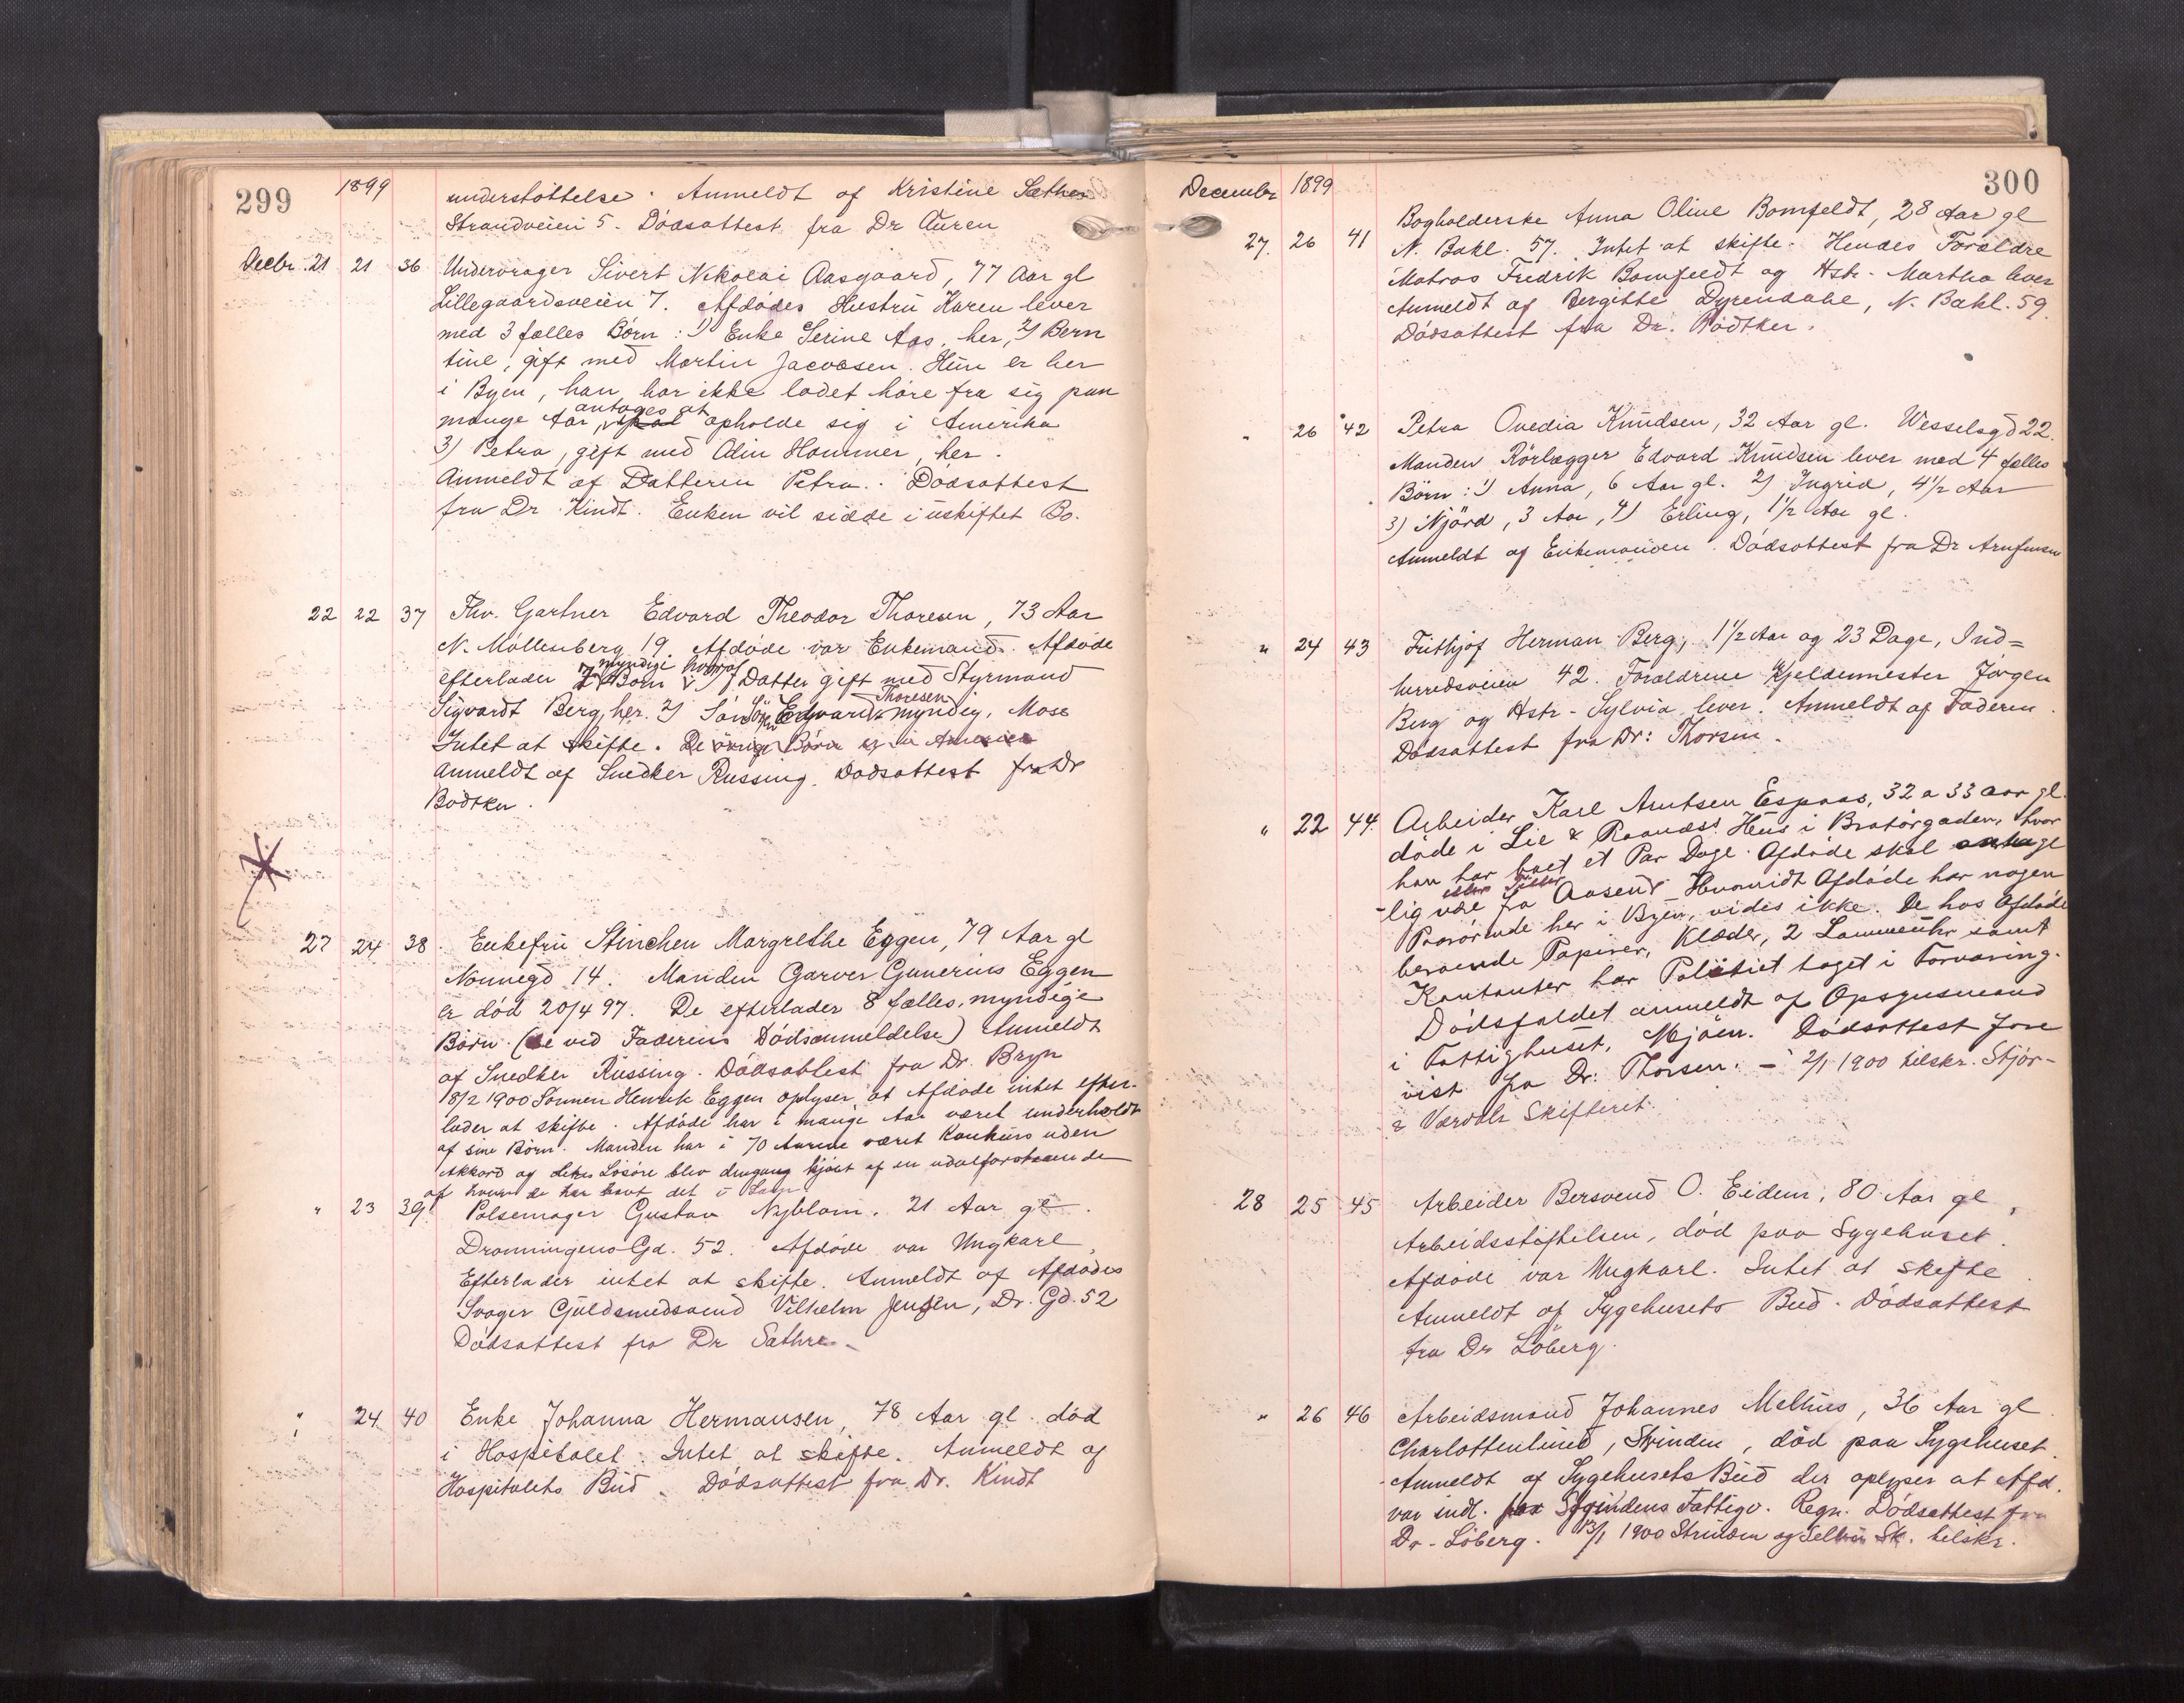 299
1899
understøttelse. Anmeldt af Kristine Sæther
Strandveien 5. Dødsattest fra Dr Auren
Decbr. 21 21 36 Undervrager Sivert Nikolai Aasgaard, 77 Aar gl
Lillegaardsveien 7. Afdødes Hustru Karen lever
med 3 fælles Børn: 1) Enke Serine Aas, her, 2) Bern
tine, gift med Martin Jacobsen. Hun er her
i Byen, han har ikke ladet høre fra sig paa
mange Aar, antages at opholde sig i Amerika
3) Petra, gift med Odin Hammer, her.
Anmeldt af Datteren Petra. Dødsattest
fra Dr Kindt. Enken vil sidde i uskiftet Bo.
22 22 37 Fhv. Gartner Edvard Theodor Thoresen, 73 Aar
N. Møllenberg 19. Afdøde var Enkemand. Afdøde
efterlader 7 myndige Børn hvoraf 1) Datter gift med Styrmand
Sigvardt Berg, her. 2) Søn Edvard Thoresen myndig, Moss
Intet at skifte. De øvrige Børn er i Amerika
Anmeldt af Snedker Russing. Dødsattest fra Dr
Bødtker.
27 24 38. Enkefru Stinchen Margrethe Eggen, 79 Aar gl
Nonnegd 14. Manden Garver Gunerius Eggen
er død 20/4 97. De efterlader 8 fælles, myndige
Børn. (se ved Faderens Dødsanmeldelse) Anmeldt
af Snedker Russing. Dødsattest fra Dr. Bryn
18/2 1900 Sønnen Henrik Eggen oplyser, at Afdøde intet efter-
lader at skifte. Afdøde har i mange Aar været underholdt
af sine Børn. Manden har i 70 Aarene været Konkurs uden
Akkord og deres Løsøre blev dengang kjøbt af en udenforstaaende
af hvem de har havt det i Laan
" 23 39 Pølsemager Gustav Nyblom, 21 Aar gl.
Dronningens Gd. 52. Afdøde var Ungkarl
Efterlader intet at skifte. Anmeldt af Afdødes
Svoger Guldsmedsvend Vilhelm Jensen, Dr. Gd. 52
Dødsattest fra Dr Sæthre
" 24 40 Enke Johanna Hermansen, 78 Aar gl. død
i Hospitalet. Intet at skifte. Anmeldt af
Hospitalets Bud. Dødsattest fra Dr. Kindt
300
December 1899
Bogholderske Anna Oline Bomfeldt, 28 Aar gl
27. 26 41 N. Bakl. 57. Intet at skifte. Hendes Forældre
Matros Fredrik Bomfeldt og Hstr. Martha lever
Anmeldt af Bergitte Dyrendahl, N. Bakl. 59.
Dødsattest fra Dr. Bødtker.
" 26 42 Petra Ovedia Knudsen, 32 Aar gl. Wesselsgd 22.
Manden Rørlægger Edvard Knudsen lever med 4 fælles
Børn: 1) Anna, 6 Aar gl. 2) Ingrid, 4 1/2 Aar
3) Njård, 3 Aar, 4) Erling, 1 1/2 Aar gl.
Anmeldt af Enkemanden. Dødsattest fra Dr
" 24 43 Frithjof Herman Berg, 1 1/2 Aar og 23 Dage, Ind=
herredsveien 42. Forældrene Kjeldermester Jørgen
Berg og Hstr. Sylvia lever. Anmeldt af Faderen.
Dødsattest fra Dr: Thorsen.
" 22 44. Arbeider Karl Arntsen Espaas, 32 a 33 aar gl.
døde i Lie & Raanæss Hus i Bratørgaden, hvor
han har boet et Par Dage. Afdøde skal antage-
-lig være fra Aasen eller Tiller. Hvorvidt Afdøde har nogen
Paarørende her i Byen, vides ikke. De hos Afdøde
beroende Papirer, Klæder, 2 Lommeuhr samt
Kontanter har Politiet taget i Forvaring.
Dødsfaldet anmeldt af Opsynsmand
i Fattighuset, Mjøen. Dødsattest fore
vist fra Dr: Thorsen. – 2/1 1900 tilskr. Stjør-
& Værdals Skifteret
28 25 45 Arbeider Bersvend O. Eidem, 80 Aar gl,
Arbeidsstiftelsen, død paa Sygehuset.
Afdøde var Ungkarl. Intet at skifte.
Anmeldt af Sygehusets Bud. Dødsattest
fra Dr Løberg.
" 26 46 Arbeidsmand Johannes Melhus, 36 Aar gl
Charlottenlund, Strinden, død paa Sygehuset.
Anmeldt af Sygehusets Bud der oplyser at Afd.
var indl. paa Strindens Fattigv. Regn. Dødsattest fra
Dr. Løberg. 13/1 1900 Strinden og Selbu Sk. tilskr.